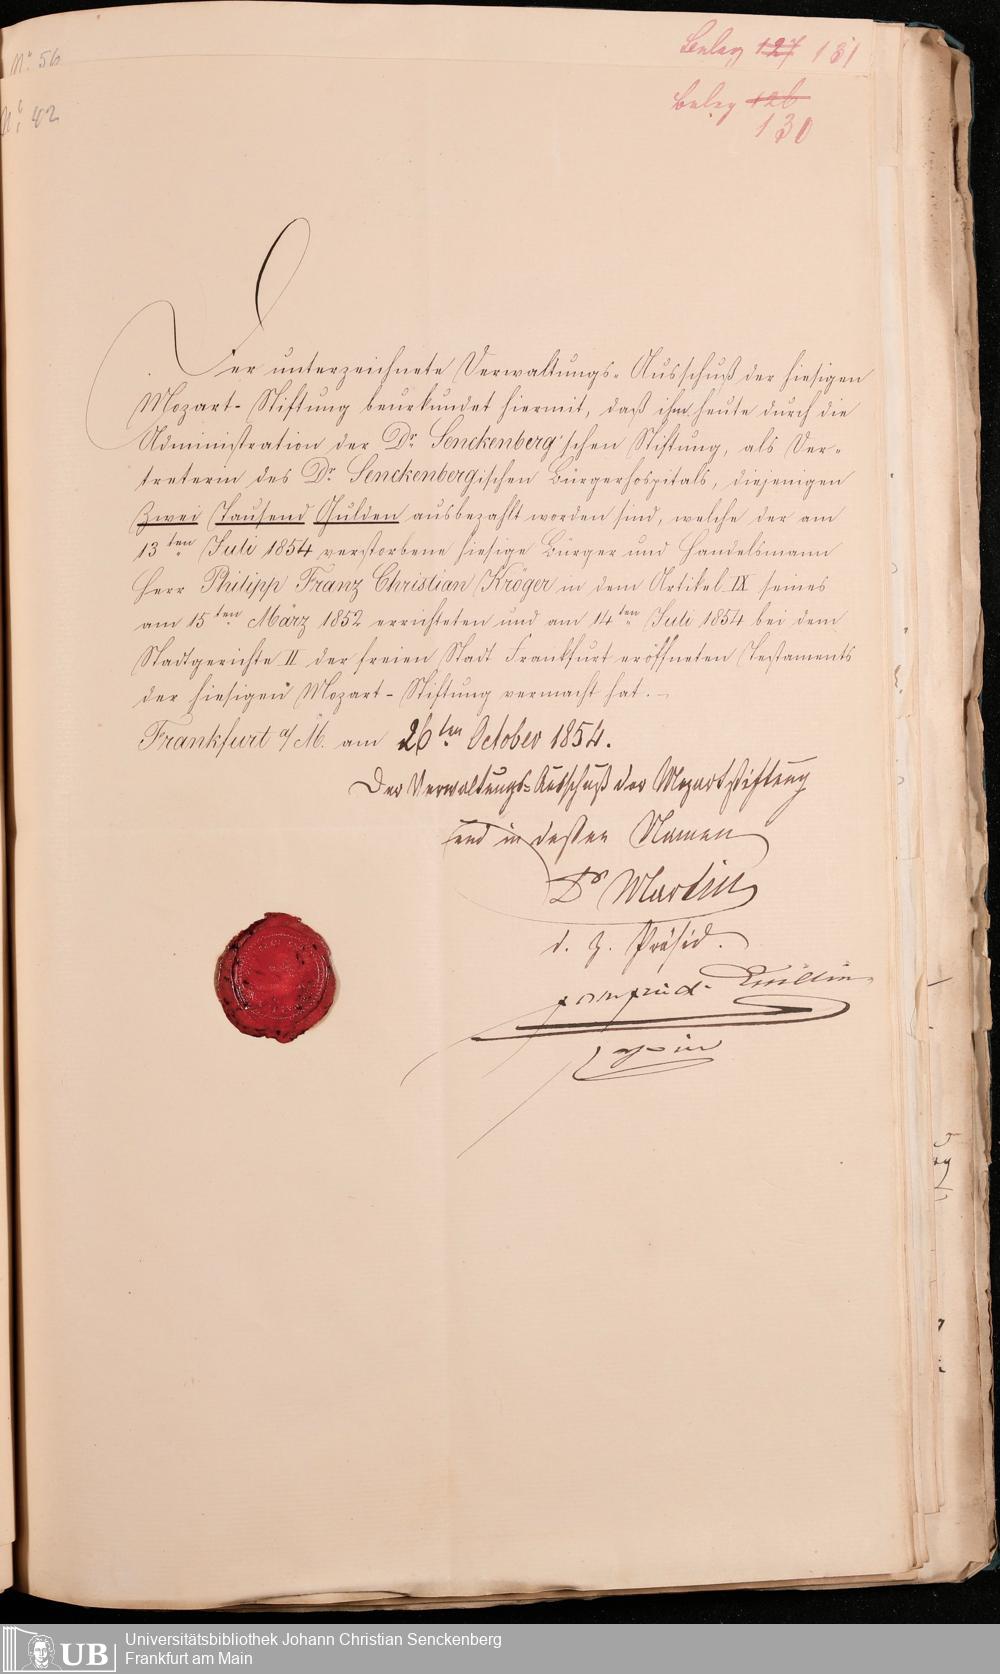 No. 56
No. 42
Beleg 127 131
Beleg 126
130
Der unterzeichnete Verwaltungs-Ausschuß der hiesigen
Mozart-Stiftung beurkundet hiermit, daß ihm heute durch die
Administration der Dr. Senckenberg'schen Stiftung, als Ver-
treterin des Dr. Senckenbergischen Bürgerhospitals, diejenigen
Zwei Tausend Gulden ausbezahlt worden sind, welche der am
13ten Juli 1854 verstorbene hiesige Bürger und Handelsmann
Herr Philipp Franz Christian Kröger in dem Artikel IX seines
am 15ten März 1852 errichteten und am 14ten Juli 1854 bei dem
Stadtgerichte II der freien Stadt Frankfurt eröffneten Testaments
der hiesigen Mozart-Stiftung vermacht hat.
Frankfurt a/M. am 26ten October 1854.
Der Verwaltungs-Ausschuß der Mozartstiftung
und in dessen Namen
Dr Martin
d. z. Präsid.
UB
Universitätsbibliothek Johann Christian Senckenberg
Frankfurt am Main